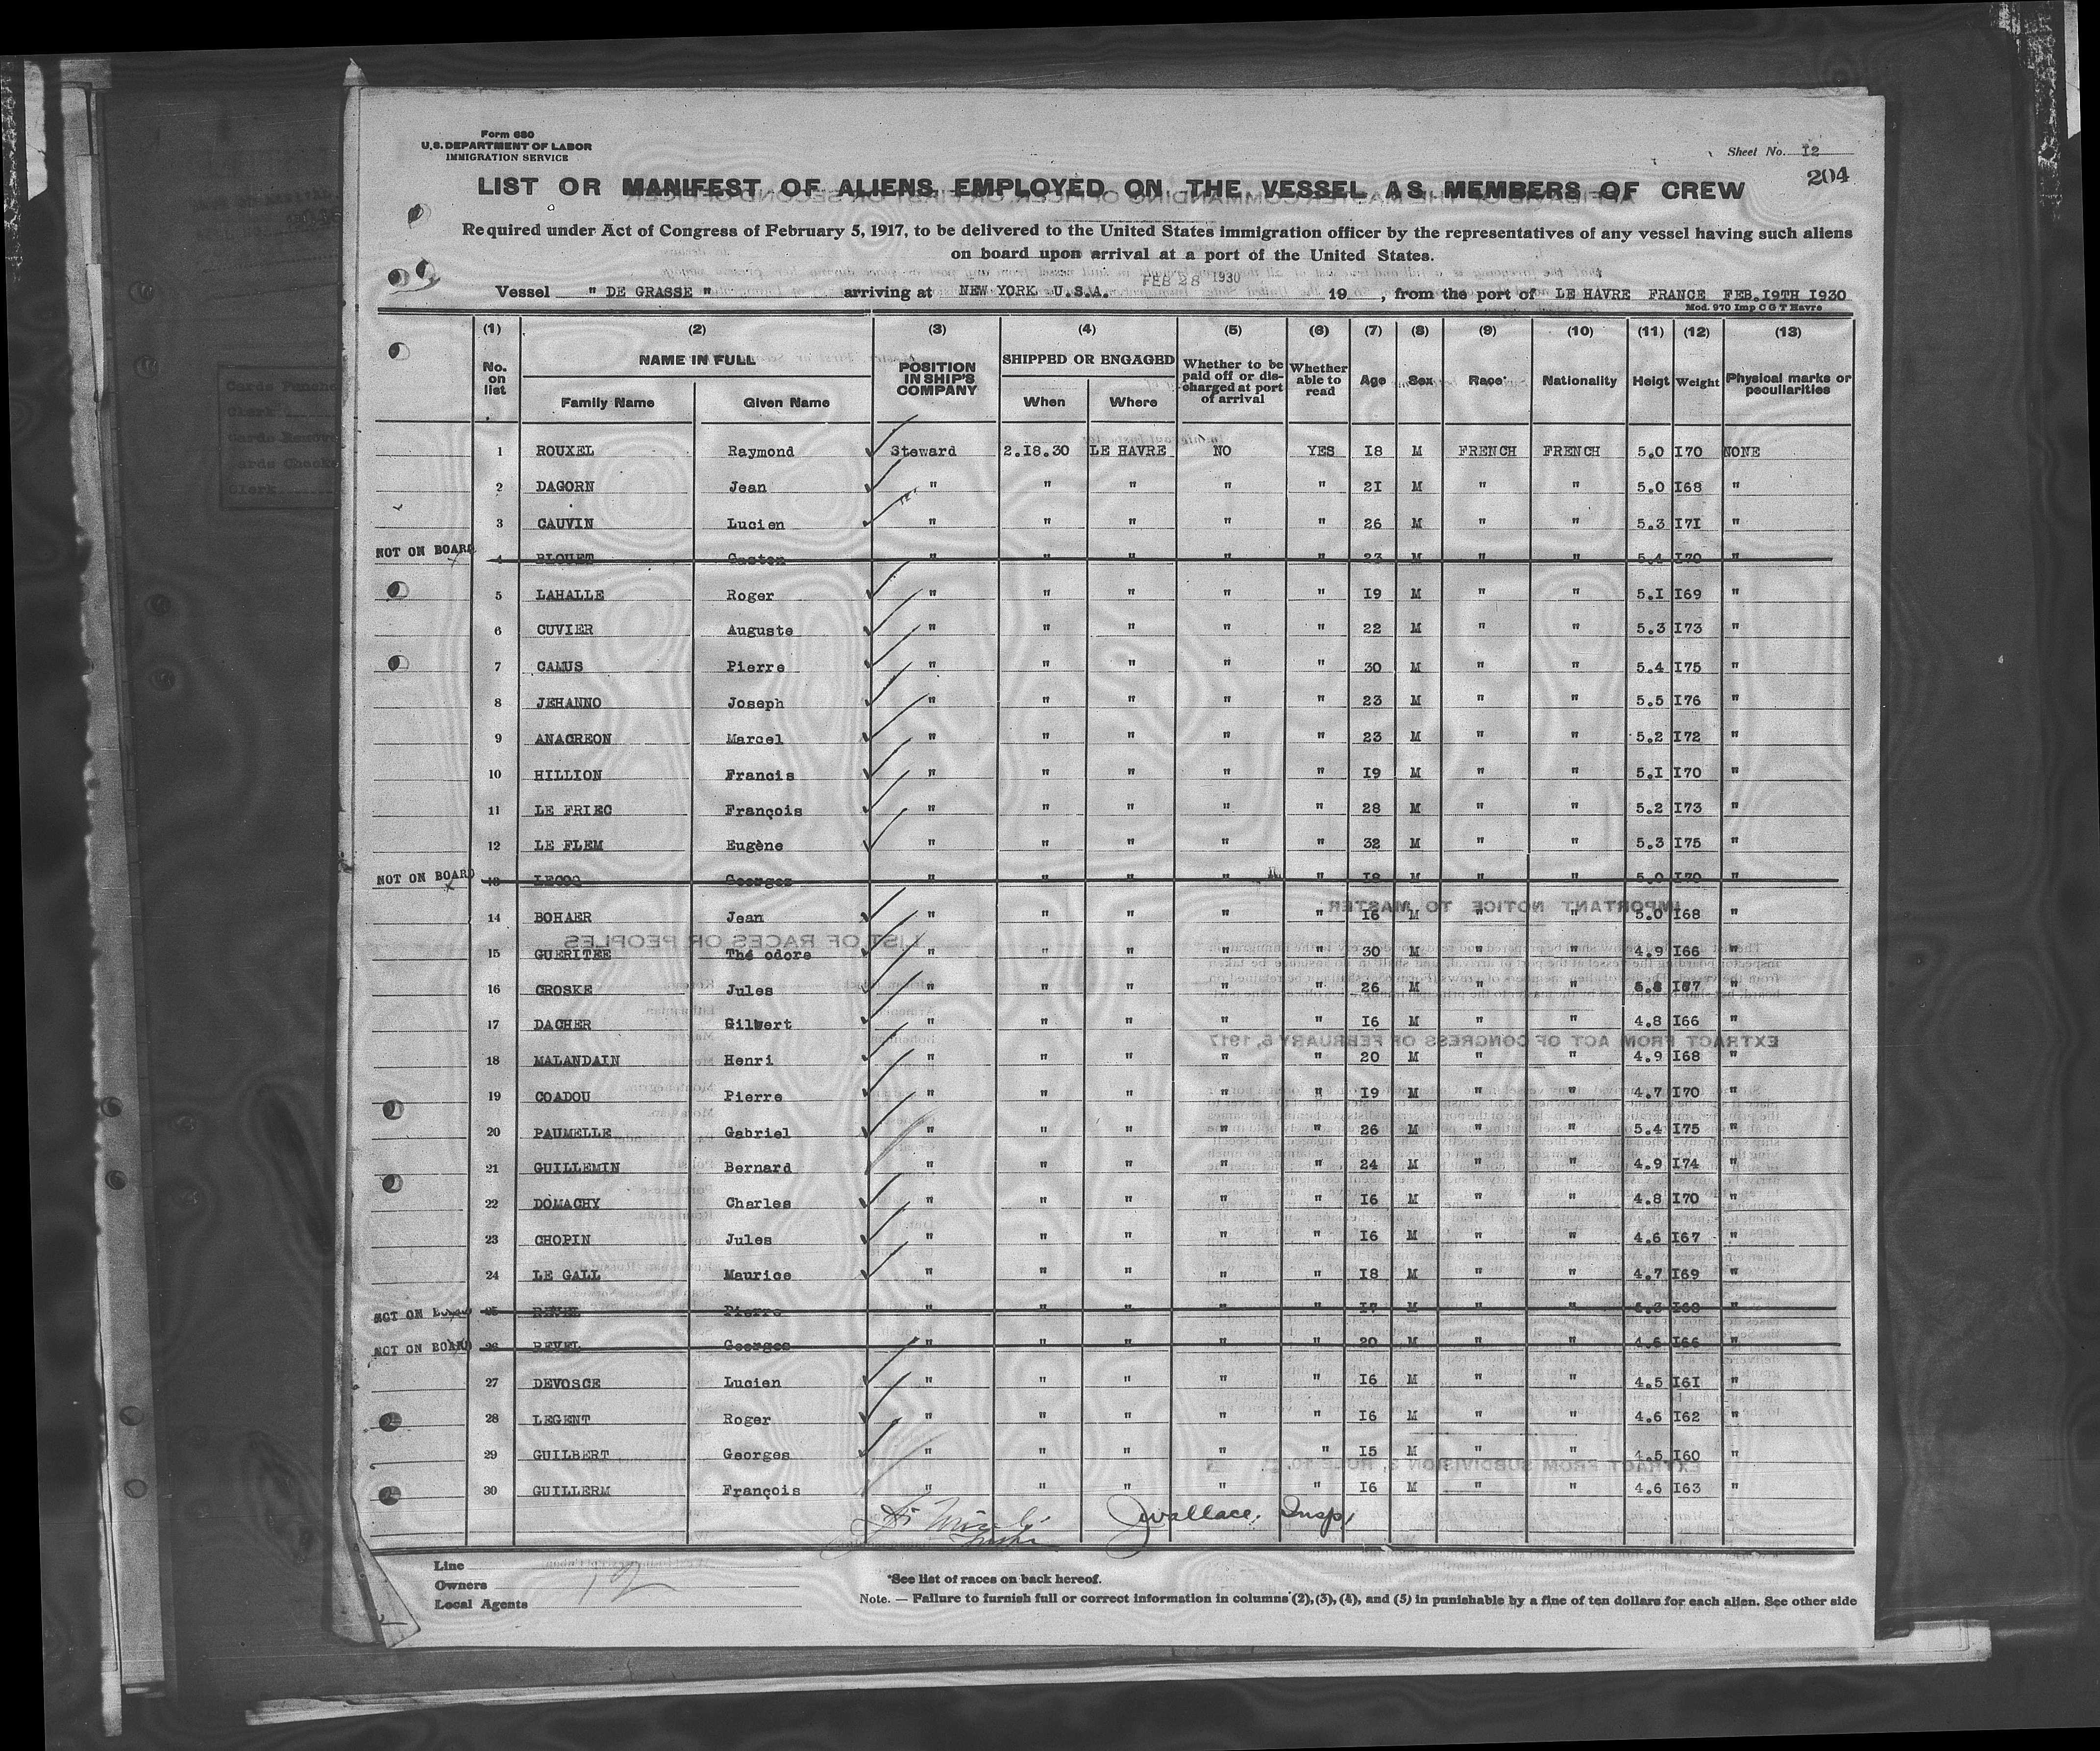 Form 680
U.S. DEPARTMENT OF LABOR
IMMIGRATION SERVICE
Sheet No. I2
204
LIST OR MANIFEST OF ALIENS EMPLOYED ON THE VESSEL AS MEMBERS OF CREW
Required under Act of Congress of February 5, 1917, to be delivered to the United States immigration officer by the representatives of any vessel having such aliens
on board upon arrival at a port of the United States.
FEB 28 1930
Vessel " DE GRASSE " arriving at NEW YORK U.S.A. 19 , from the port of LE HAVRE FRANCE FEB.I9TH I930
Mod. 970 Imp C G T Havre
(1) (2) (3) (4) (5) (6) (7) (8) (9) (10) (11) (12) (13)
No. on list NAME IN FULL Family Name Given Name POSITION IN SHIP'S COMPANY SHIPPED OR ENGAGED When Where Whether to be paid off or discharged at port of arrival Whether able to read Age Sex Race* Nationality Heigt Weight Physical marks or peculiarities
1 ROUXEL Raymond Steward 2.I8.30 LE HAVRE NO YES I8 M FRENCH FRENCH 5.0 I70 NONE
2 DAGORN Jean " " " " " 2I M " " 5.0 I68 "
3 CAUVIN Lucien " " " " " 26 M " " 5.3 I7I "
NOT ON BOARD 4 BLOUET Gaston " " " " " 23 M " " 5.4 I70 "
5 LAHALLE Roger " " " " " I9 M " " 5.I I69 "
6 CUVIER Auguste " " " " " 22 M " " 5.3 I73 "
7 CAMUS Pierre " " " " " 30 M " " 5.4 I75 "
8 JEHANNO Joseph " " " " " 23 M " " 5.5 I76 "
9 ANACREON Marcel " " " " " 23 M " " 5.2 I72 "
10 HILLION Francis " " " " " I9 M " " 5.I I70 "
11 LE FRIEC François " " " " " 28 M " " 5.2 I73 "
12 LE FLEM Eugène " " " " " 32 M " " 5.3 I75 "
NOT ON BOARD 13 LECOQ Georges " " " " " I8 M " " 5.0 I70 "
14 BOHAER Jean " " " " " I6 M " " 5.0 I68 "
15 GUERITEE Thé odore " " " " " 30 M " " 4.9 I66 "
16 CROSKE Jules " " " " " 26 M " " I67 "
17 DACHER Gilbert " " " " " I6 M " " 4.8 I66 "
18 MALANDAIN Henri " " " " " 20 M " " 4.9 I68 "
19 COADOU Pierre " " " " " I9 M " " 4.7 I70 "
20 PAUMELLE Gabriel " " " " " 26 M " " 5.4 I75 "
21 GUILLEMIN Bernard " " " " " 24 M " " 4.9 I74 "
22 DOMACHY Charles " " " " " I6 M " " 4.8 I70 "
23 CHOPIN Jules " " " " " I6 M " " 4.6 I67 "
24 LE GALL Maurice " " " " " I8 M " " 4.7 I69 "
NOT ON BOARD 25 REVEL Pierre " " " " " I7 M " " I68 "
NOT ON BOARD 26 REVEL Georges " " " " " 20 M " " 4.6 I66 "
27 DEVOSCE Lucien " " " " " I6 M " " 4.5 I6I "
28 LEGENT Roger " " " " " I6 M " " 4.6 I62 "
29 GUILBERT Georges " " " " " I5 M " " 4.5 I60 "
30 GUILLERM François " " " " " I6 M " " 4.6 I63 "
JWallace, Insp,
Line
Owners
Local Agents
*See list of races on back hereof.
Note. — Failure to furnish full or correct information in columns (2), (3), (4), and (5) in punishable by a fine of ten dollars for each alien. See other side